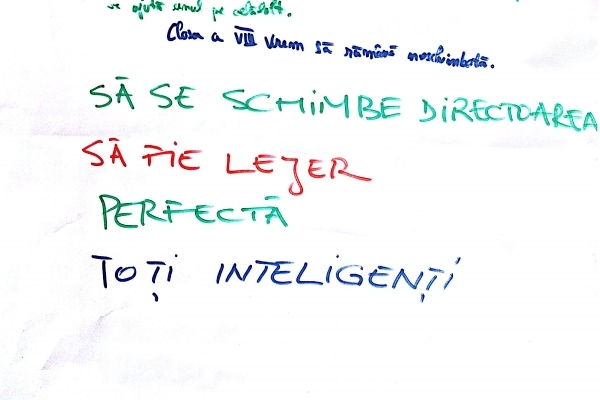 se ajută unul pe celălalt.
Clasa a VIII vrem să rămână neschimbată.
SĂ SE SCHIMBE DIRECTOAREA
SĂ FIE LEJER
PERFECTĂ
TOȚI INTELIGENȚI